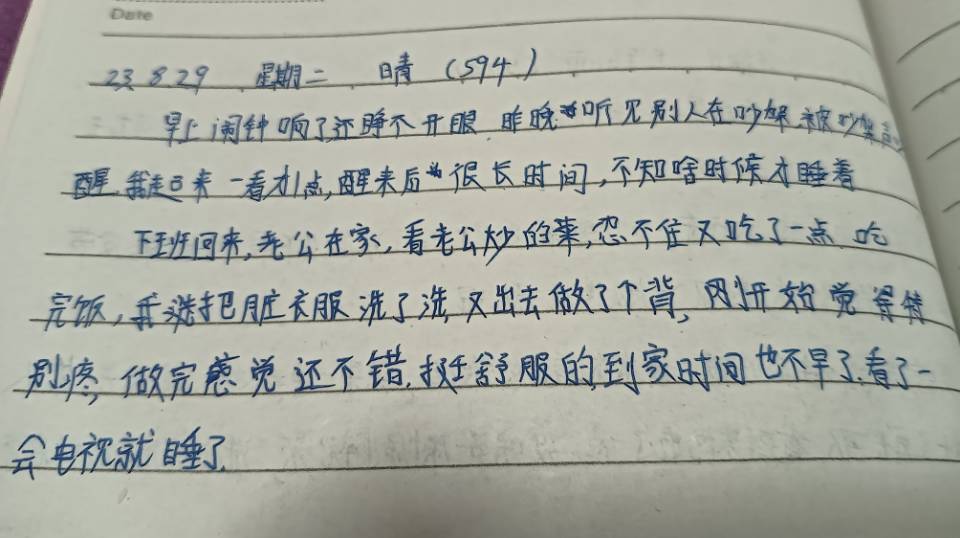 Date
23. 8. 29 星期二 晴 (594)
早上闹钟响了还睁不开眼 昨晚听见别人在吵架 被吵
醒, 我起来 一看才1点, 醒来后很长时间, 不知啥时候才睡着
下班回来, 老公在家, 看老公炒的菜, 忍不住又吃了一点 吃
完饭, 我洗把脏衣服洗了洗 又出去做了个背, 刚开始觉得特
别疼, 做完感觉还不错, 挺舒服的 到家时间也不早了. 看了一
会电视就睡了.